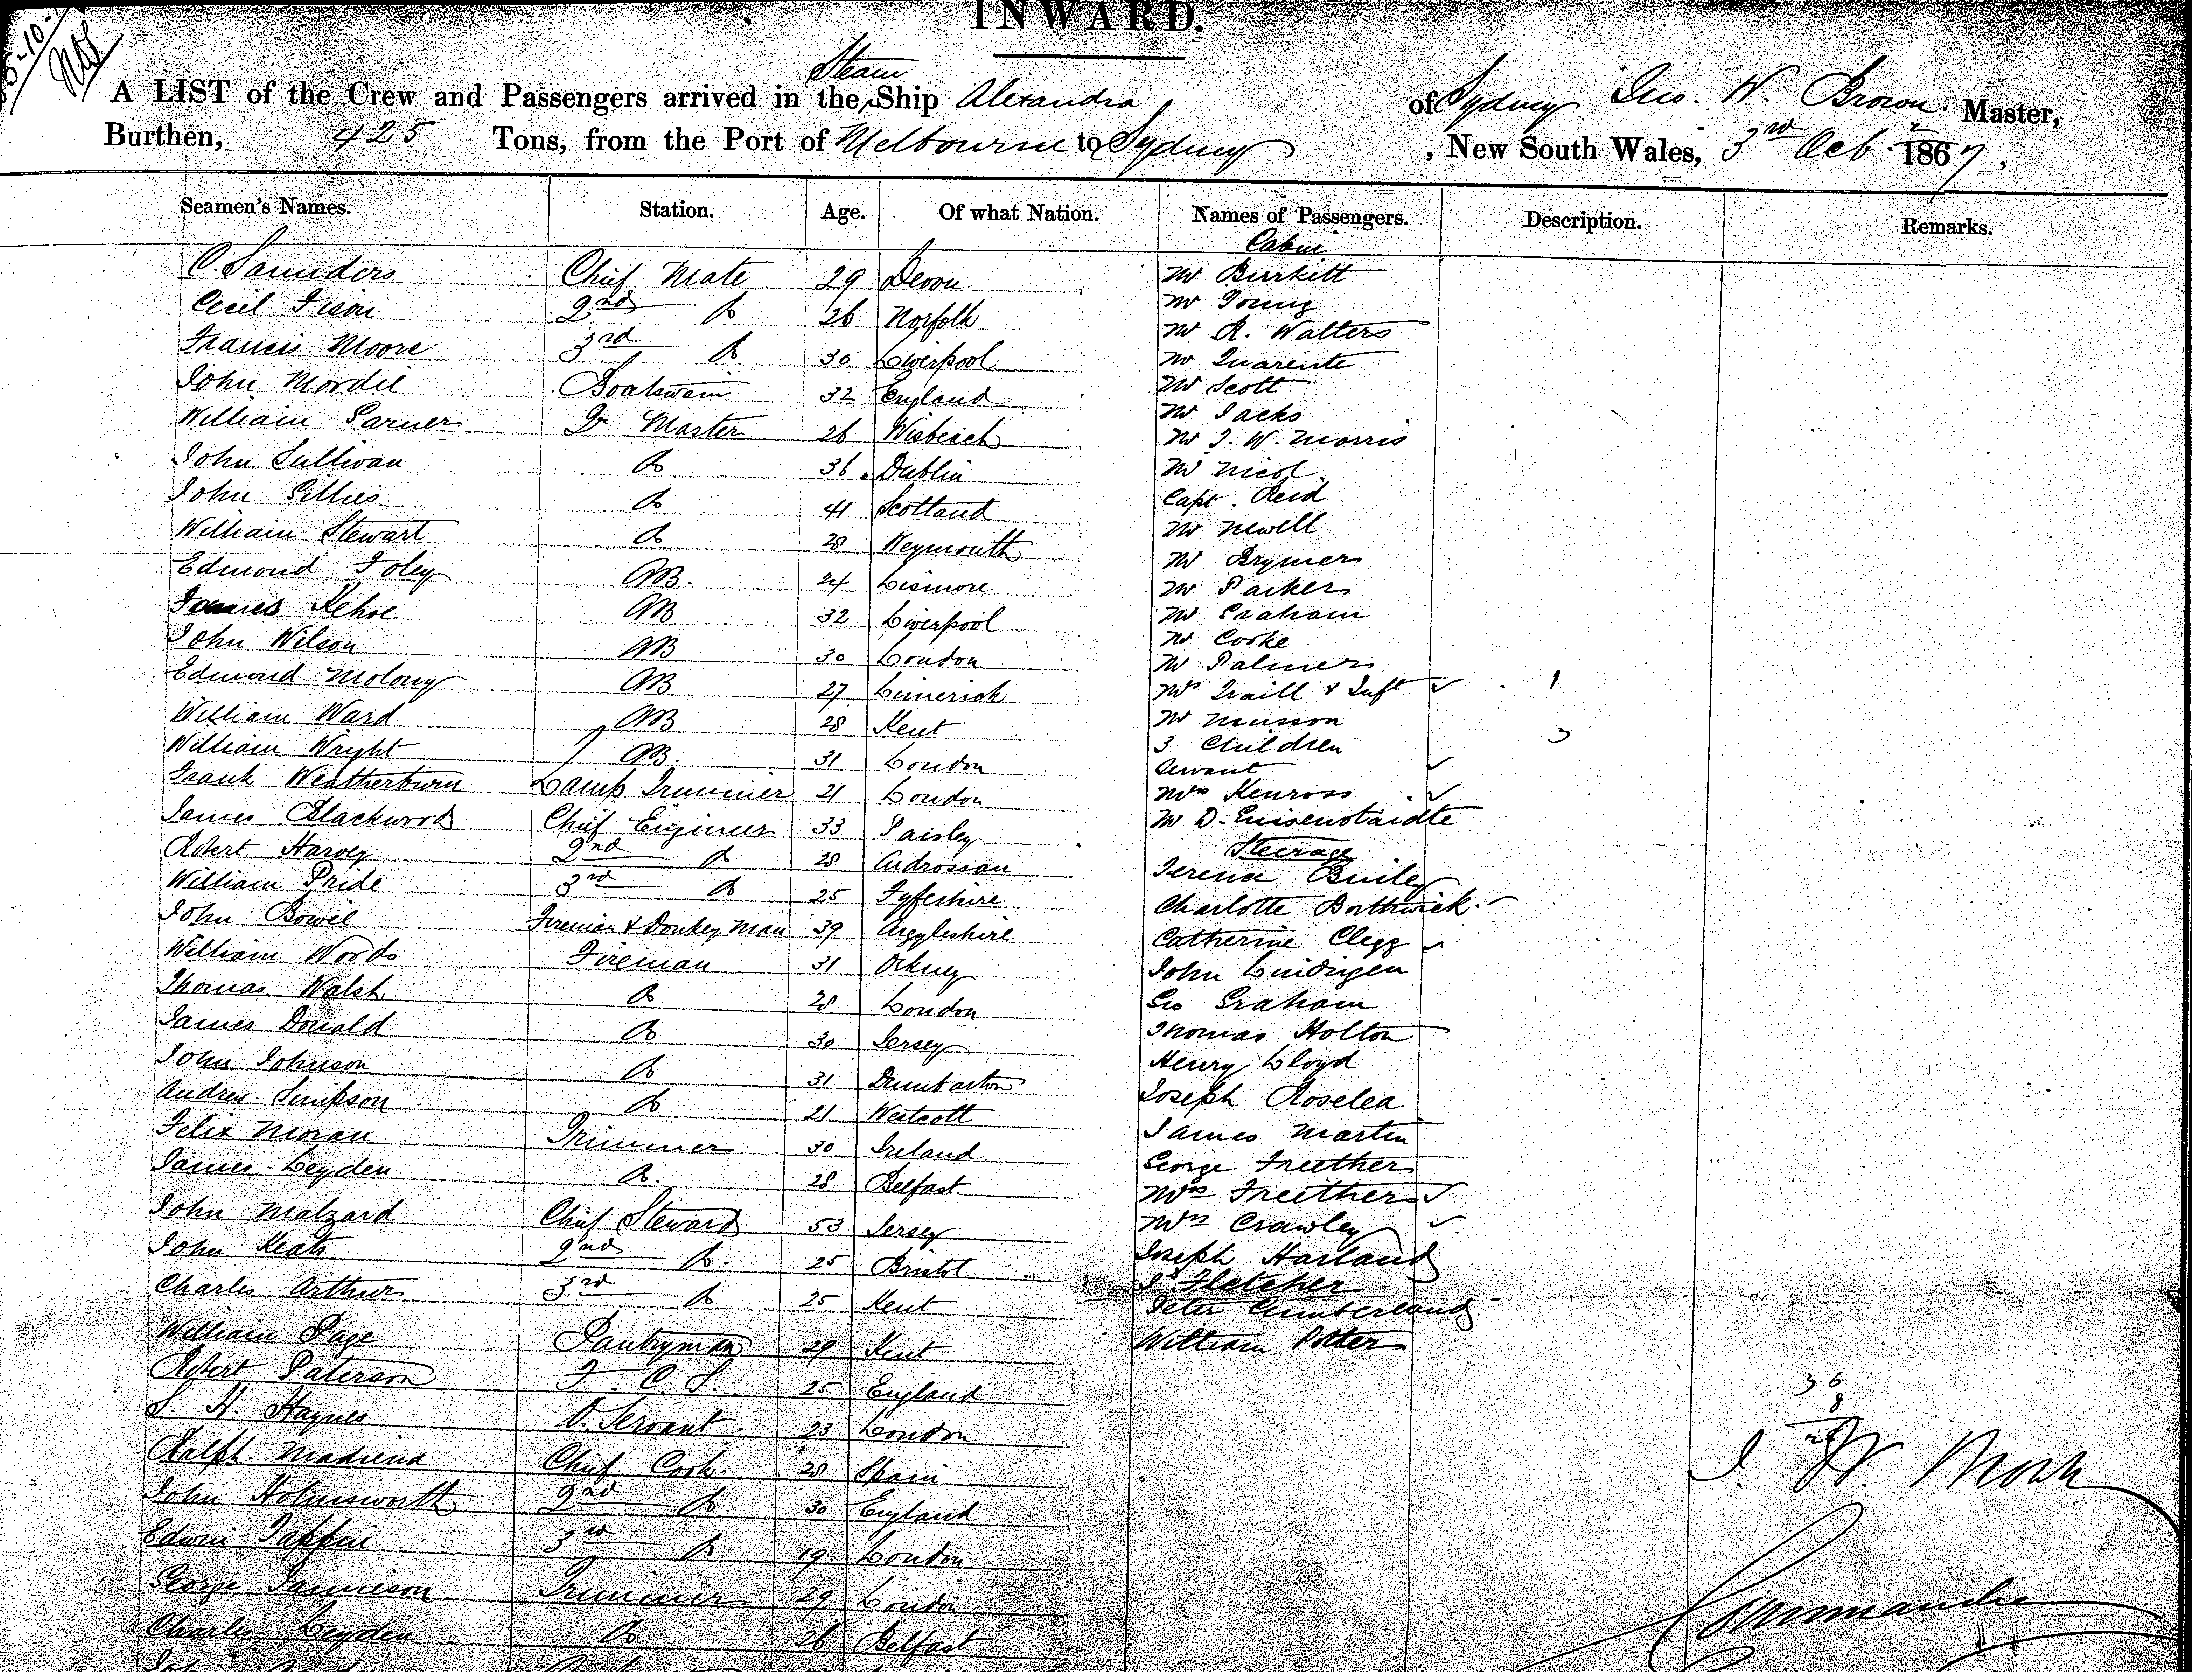 INWARD.
5-10-
Steam
A LIST of the Crew and Passengers arrived in the Ship Alexandra of Sydney Jno. W. Brown Master,
Burthen, 425 Tons, from the Port of Melbourne to Sydney, New South Wales, 3rd Oct 1867.
Seamen's Names. Station. Age. Of what Nation. Names of Passengers. Description. Remarks.
Cabin
C Saunders Chief Mate 29 Devon Mr Burkitt
Cecil Fison 2nd Do 26 Norfolk Mr Young
Francis Moore 3rd Do 30 Liverpool Mr R. Walters
John Mordie Boatswain 32 England Mr Quarente
Mr Scott
William Garner Qr Master 26 Wisbeach Mr Jacks
John Sullivan Do 36 Dublin Mr J. W. Morris
Mr Nicol
John Gillies Do 41 Scotland Capt. Reid
William Stewart Do 28 Weymouth Mr Newell
Edmond Foley AB. 24 Lismore Mr Brymer
Mr Parker
James Kehoe AB 32 Liverpool Mr Graham
John Wilson AB 30 London Mr Cooke
Mr Palmer
Edward Molony AB 27 Limerick Mrs Traill & Inft 1
William Ward AB 28 Kent Mr Musson
3 Children 3
William Wright AB. 31 London Servant
Frank Weatherburn Lamp Trimmer 21 London Mrs Kenross
James Blackwood Chief Engineer 33 Paisley Mr D.
Steerage
Robert Harvey 2nd Do 28 Ardrossan Terence
William Pride 3rd Do 25 Fyfeshire Charlotte Borthwick
John Bowie Fireman & Donkey Man 39 Argyleshire Catherine Clegg
William Woods Fireman 31 Orkney John Lindigen
Thomas Walsh Do 28 London Geo Graham
James Donald Do 30 Jersey Thomas Holton
John Johnson Do 31 Dumbarton Henry Lloyd
Andrew Simpson Do 21 Westcott Joseph Roselea
Felix Moran Trimmer 30 Ireland James Martin
James Leyden Do. 28 Belfast George Freether
Mrs Freether
John Malzard Chief Steward 53 Jersey Mrs Crawley
John Keats 2nd Do. 25 Bristol Joseph Harland
Charles Arthur 3rd Do 25 Kent Js Fletcher
Peter Cumberland
William Page Pantryman 29 Kent William Potter
Robert Paterson F. C. S. 25 England
S. H. Haynes O. Servant 23 London
Ralph Madiena Chief Cook 28 Spain
John Holmsworth 2nd Do 30 England
Edwin Tappin 3rd Do 19 London
George Jamieson Trimmer 29 London
Charles Leyden Do 26 Belfast
36
8
J. W. Brown
Commander